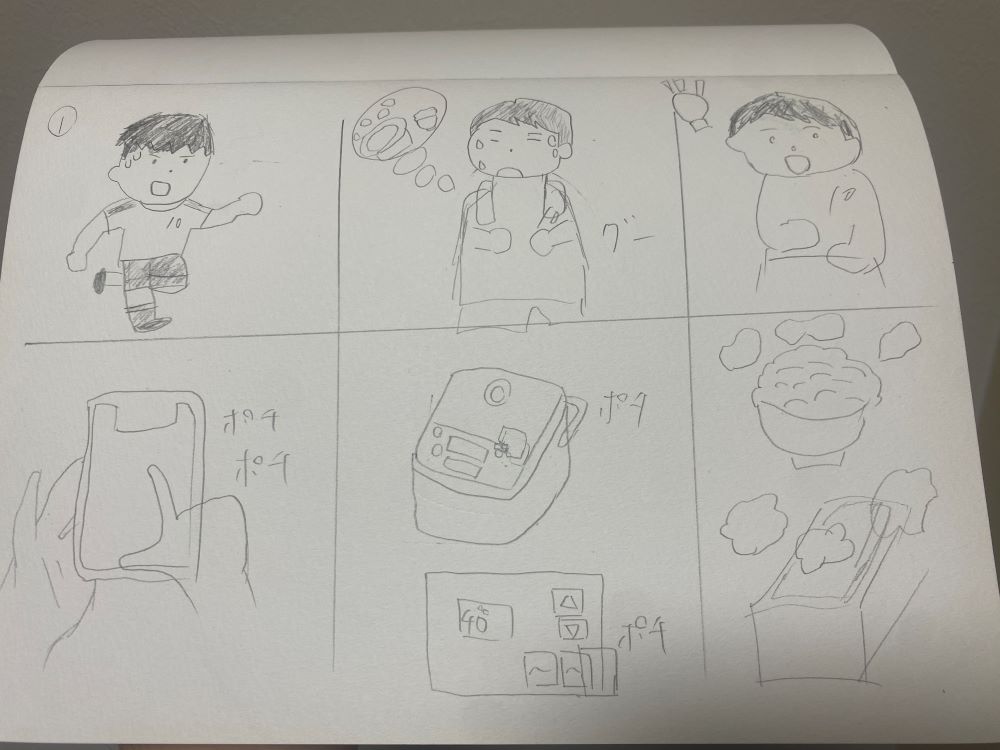 ①
10
グー
10
ポチ
ポチ
ポチ
40℃
ポチ